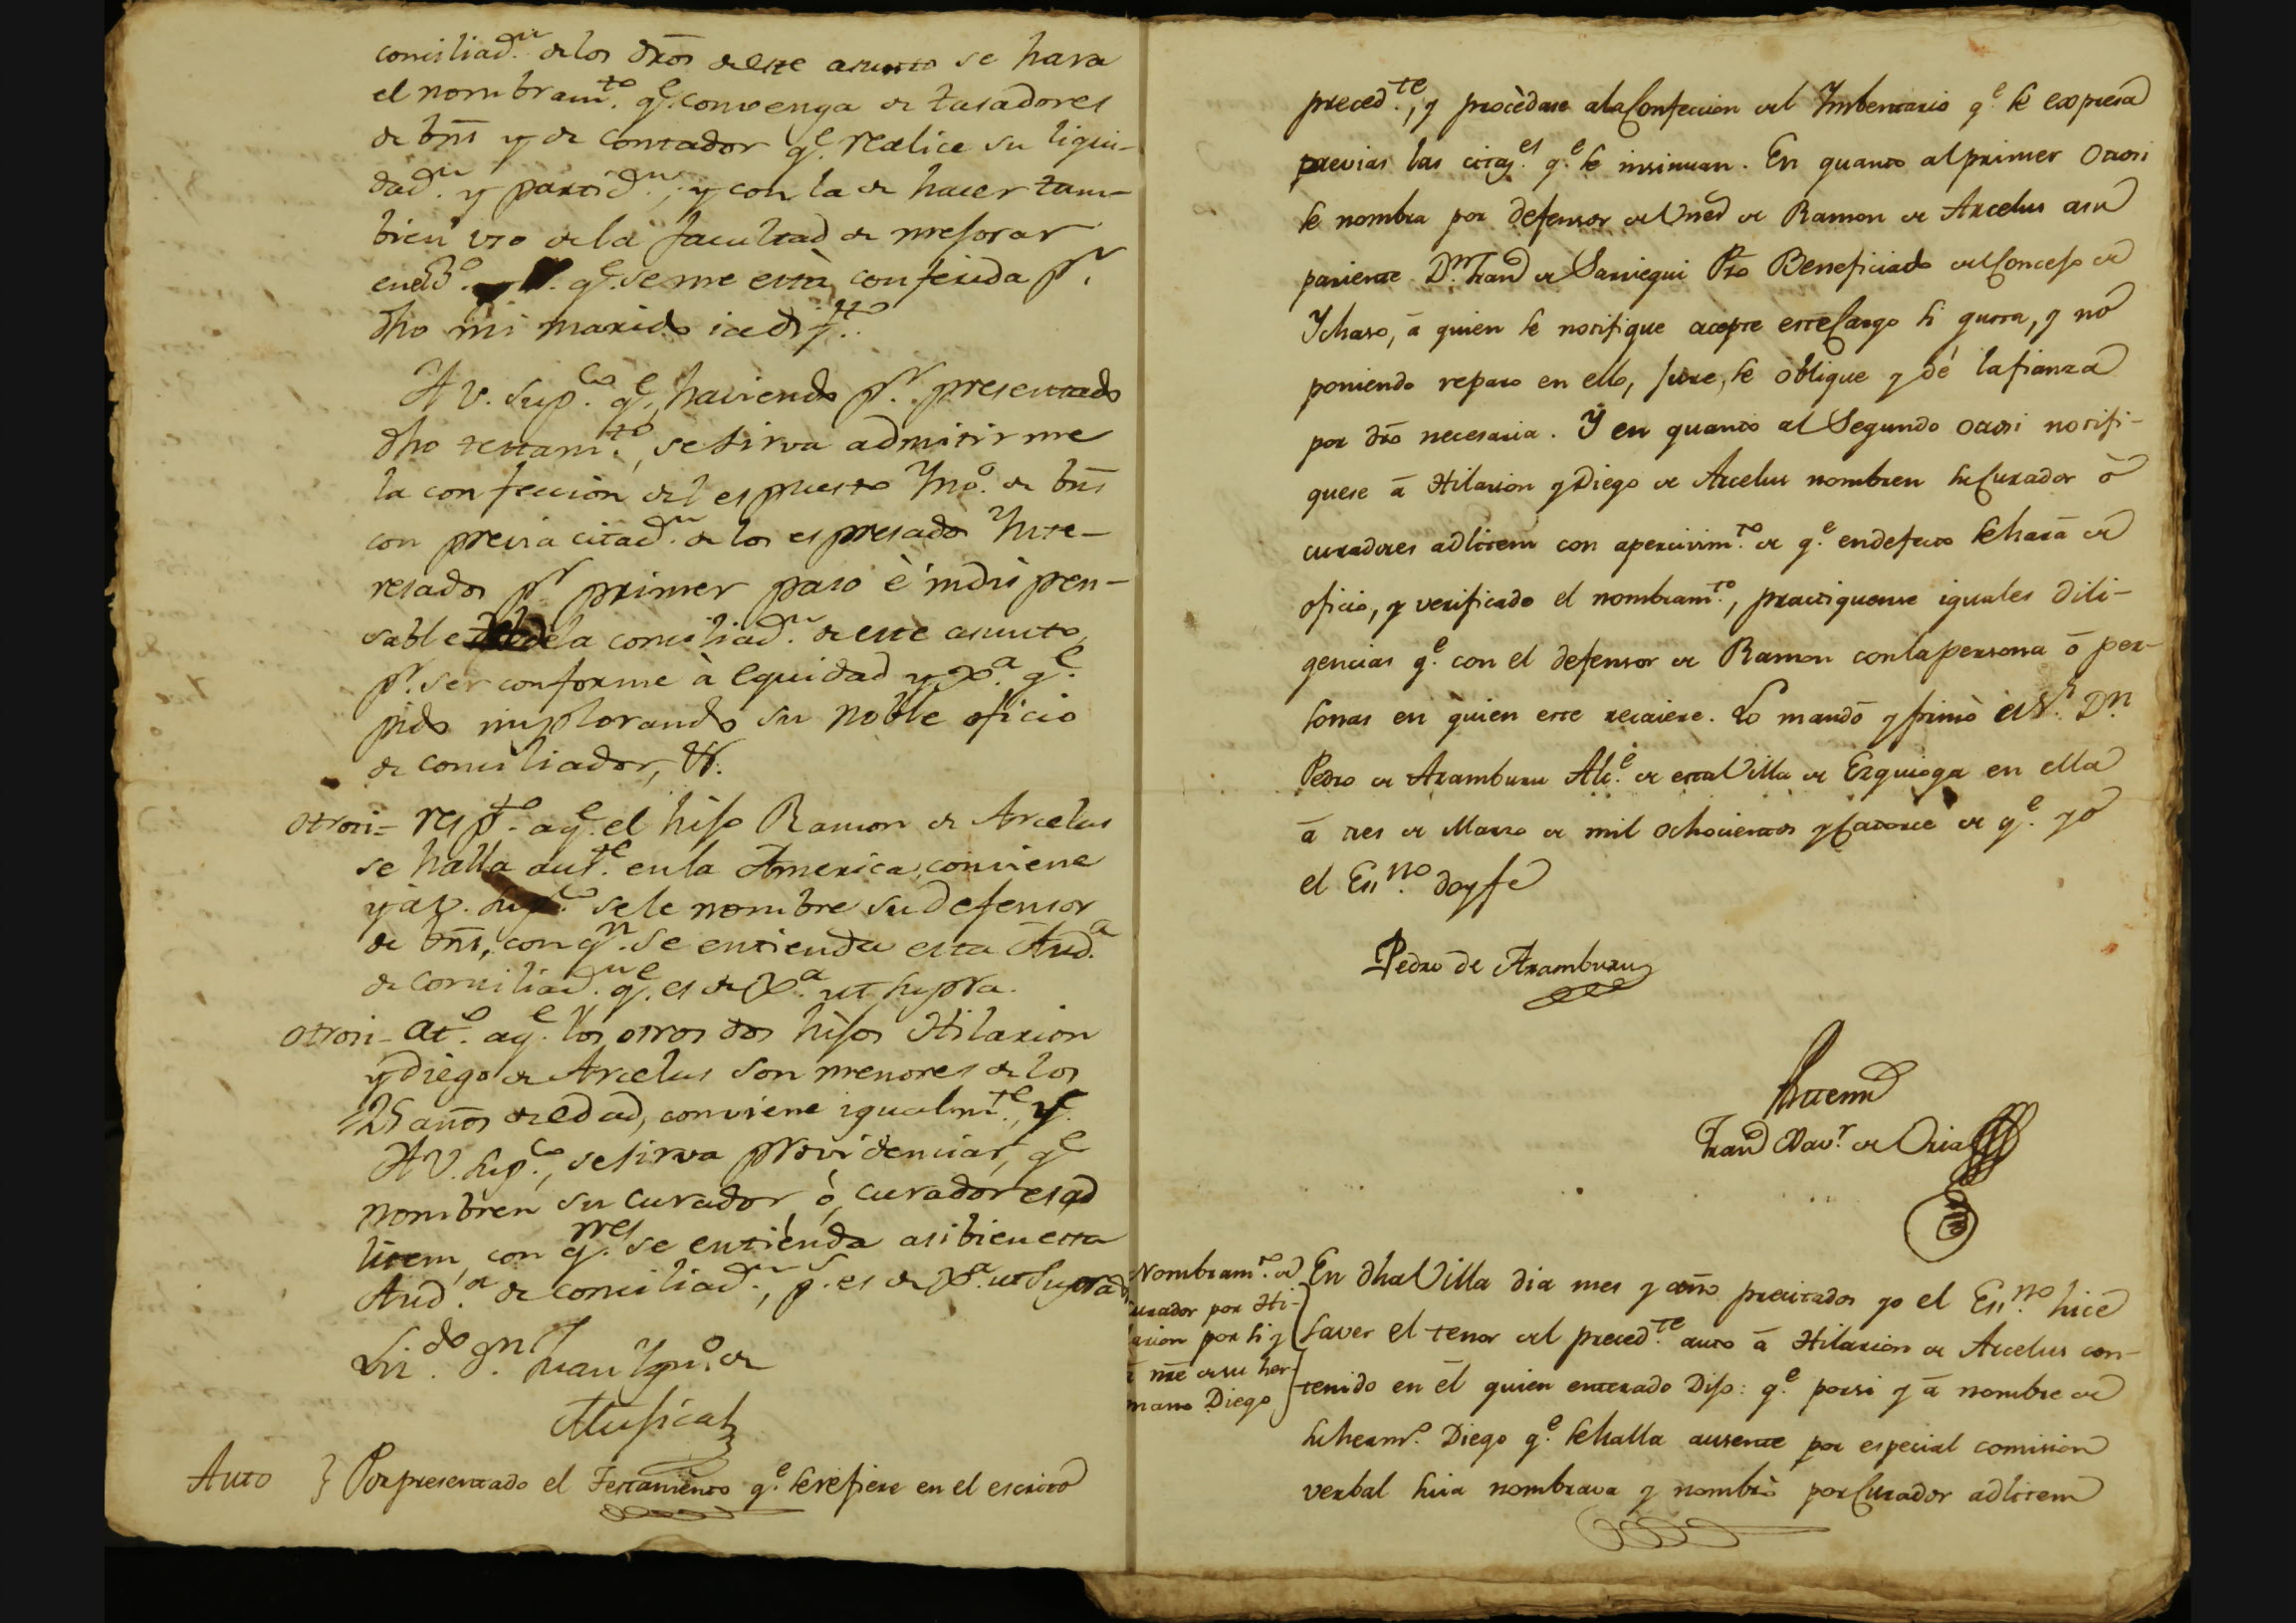 conciliad.n de los dros de este asunto se hara
el nombram.to q.e convenga de tasadores
de bns y de contador q.e realice su liqui-
dad.n y partid.n, y con la de hacer tam-
bien uso de la facultad de mejorar
q.e se me está conferida p.r
dho mi marido
A V. Sup.co q.e, haviendo p.r presentado
dho testam.to, se sirva admitirme
la confeccion del espuesto Ymo. de bns
con previa citad.n de los espresados Ynte-
resados p.r primer paso è indispen-
sable de la conciliad.n de este asunto,
p.r ser conforme à equidad y Xª q.e
pido implorando su noble oficio
de conciliador, &.
otrosi= resp.to aq.e el hijo Ramon de Arcelus
se halla aus.te en la America, conviene
y à V. sup.co se le nombre su defensor
de bns, con q.n se entienda esta Aud.a
de conciliad.n q.e es de Xª ut supra.
otrosi- at.o aq.e los otros dos hijos Hilarion
y Diego de Arcelus son menores de los
25 años de edad, conviene igualm.te, y
A V. sup.co, se sirva providenciar, q.e
nombren su curador, ò, curadores ad
litem, con q.nes se entienda asi bien esta
Aud.a de conciliad.n, p.s es de Xª ut supra
Lic.do D.n Juan Ygn.o de
Musica
Auto } Por presentado el Testamento q.e se refiere en el escrito
preced.te, y procèdase ala Confeccion del Ymbentario q.e se expresa
previas las citay.es q.e se insinuan. En quanto al primer Otrosi
se nombra por defensor de Vned de Ramon de Arcelus a su
pariente D.n Fran.co de Sarriegui Pro Beneficiado del Concejo de
Ychaso, á quien se notifique acepte este Cargo si gusta, y no
poniendo reparo en ello, jure, se oblique y dé la fianza
por dro necesaria. Y en quanto al Segundo otrosi notifi-
quese á Hilarion y Diego de Arcelus nombren su Curador ò
curadores adlitem con apercivim.to de q.e en defecto se hará de
oficio, y verificado el nombram.to, practiquense iguales dili-
gencias q.e con el defensor de Ramon con la persona ó per-
sonas en quien este recaiere. Lo mandó y firmò el S.r D.n
Pedro de Aramburu Alc.e de esta Villa de Ezquioga en ella
á tres de Marzo de mil ochocientos y Catorce de q.e yo
el Es.no doy fe
Pedro de Aramburu
Antemi
Fran.co Xav.r de Oria
Nombram.to de
curador por Hi-
larion por si y
á nre de su her-
mano Diego
En dha Villa dia mes y año precitados yo el Es.no hice
saver el tenor del preced.te auto á Hilarion de Arcelus con-
tenido en él quien enterado Dijo: q.e por si y á nombre de
su herm.o Diego q.e se halla ausente por especial comision
verbal suia nombrava y nombrò por Curador adlitem